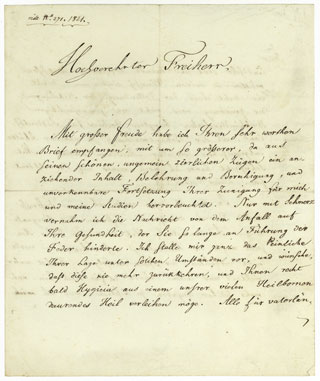 1821.
Hochverehrter Freiherr.
Mit großer Freude habe ich Ihren sehr werthen
Brief empfangen, mit um so größerer, da aus
seinen schönen, ungemein zierlichen Zügen ein an-
ziehender Inhalt, Belehrung und Beruhigung, und
unverkennbare Fortsetzung Ihrer Zuneigung für mich
und meine Studien hervorleuchtet. Nur mit Schmerz
vernahm ich die Nachricht von dem Anfall auf
Ihre Gesundheit, der Sie so lange an Führung der
Feder hinderte. Ich stelle mir ganz das Peinliche
Ihrer Lage unter solchen Umständen vor, und wünsche,
daß diese nie mehr zurückkehren, und Ihnen recht
bald Hygieia aus einem unsrer vielen Heilbronnen
daurendes Heil verleihen möge. Alle für vaterlän-